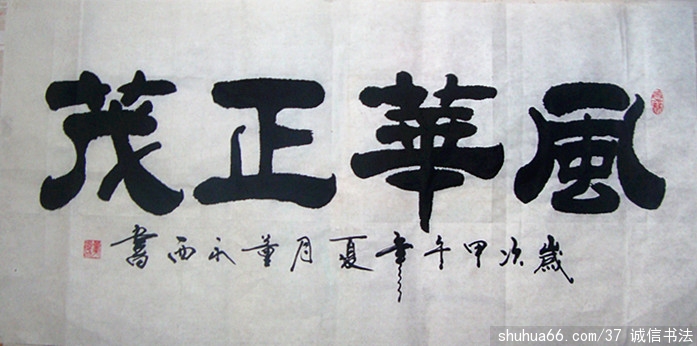 風華正茂
歲次甲午年夏月董永西書
shuhua66.com/37 诚信书法